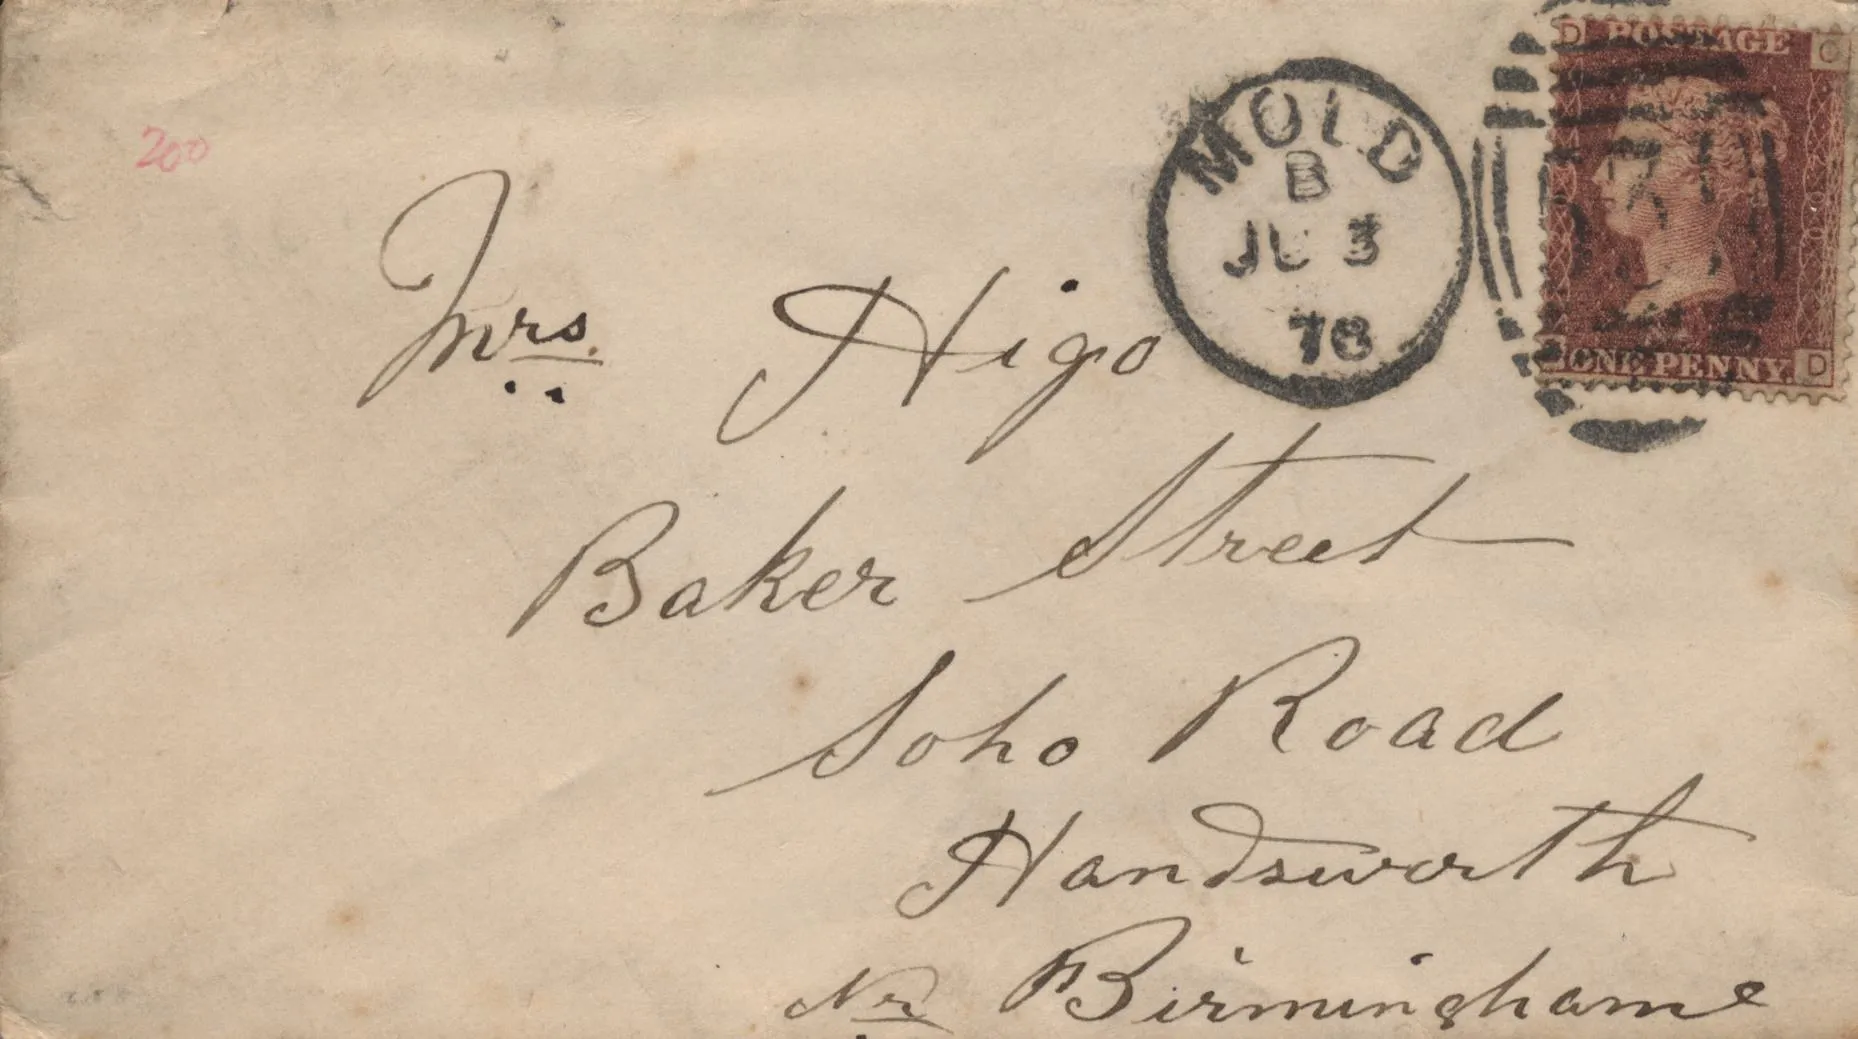 D POSTAGE C
MOLD
B
JU 3
78
200
Mrs. Higo
ONE PENNY. D
Baker Street
Soho Road
Handsworth
Nr Birmingham